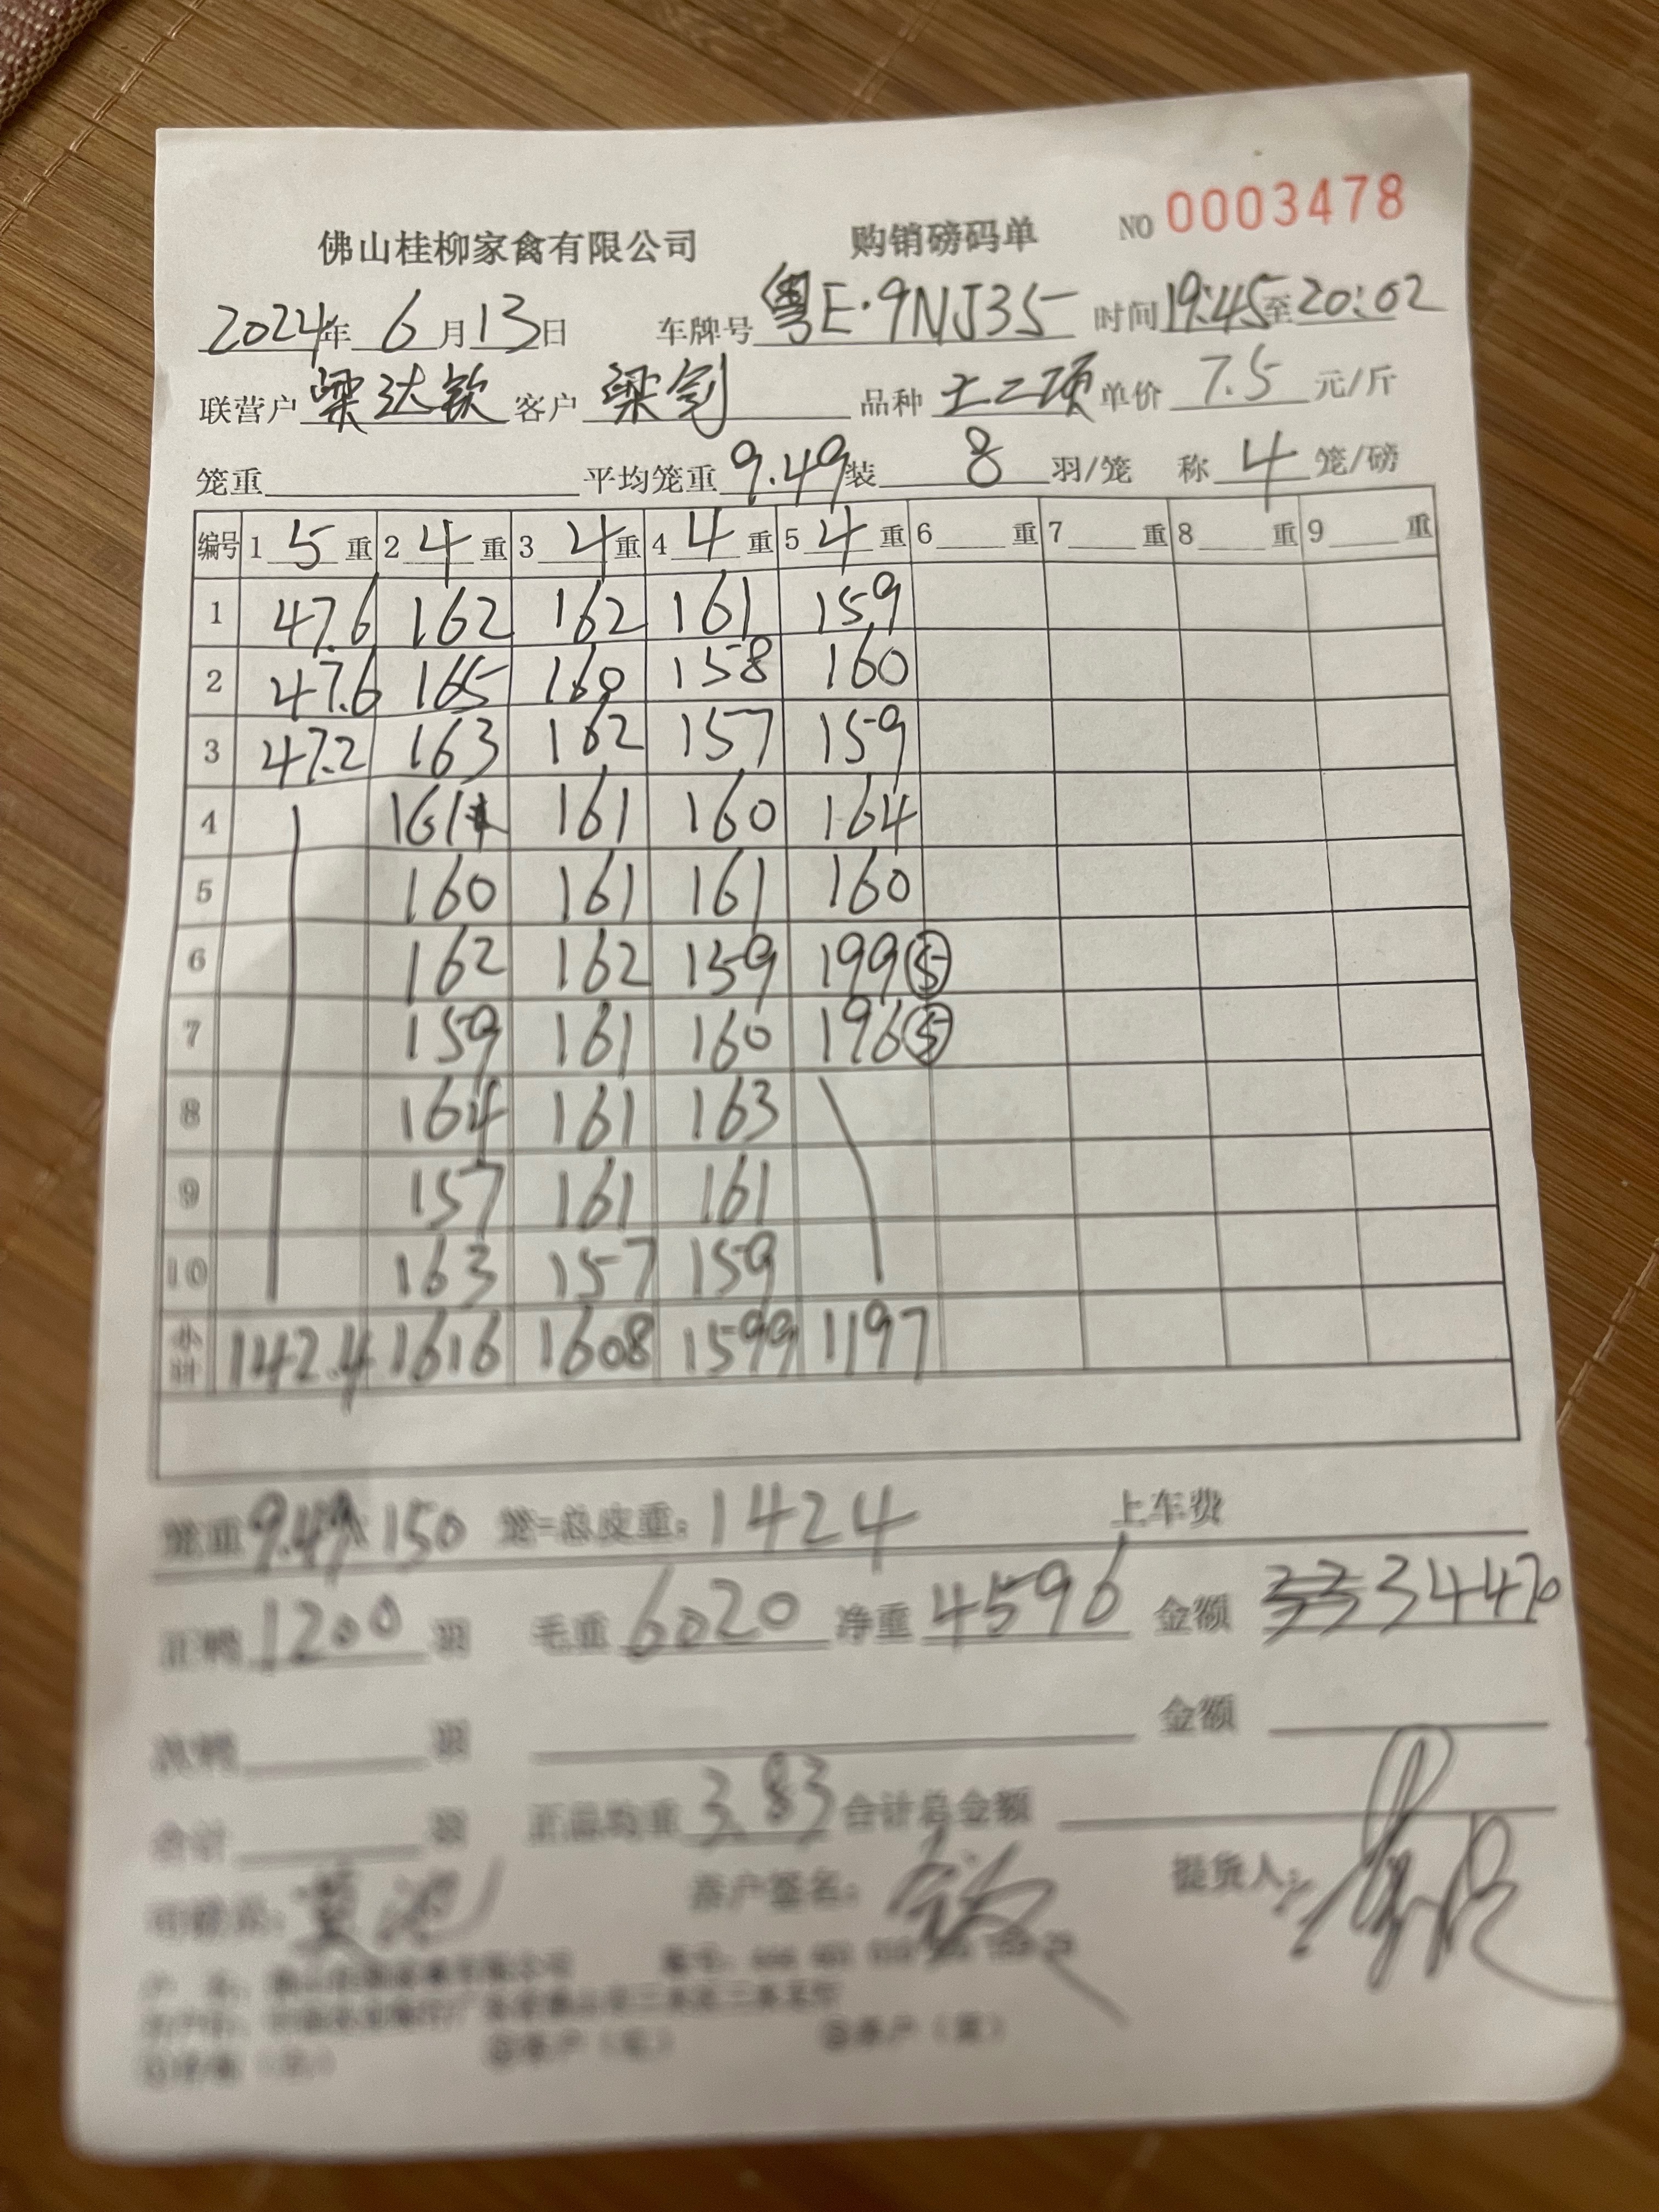 佛山桂柳家禽有限公司 购销磅码单 NO 0003478
2024年 6月13日 车牌号 粤E·9NJ35 时间19:45至20:02
联营户 梁达钦 客户 梁剑 品种 土二项 单价 7.5 元/斤
笼重 平均笼重 9.49 装 8 羽/笼 称 4 笼/磅
编号 1 5 重 2 4 重 3 4 重 4 4 重 5 4 重 6 重 7 重 8 重 9 重
1 47.6 162 162 161 159
2 47.6 165 160 158 160
3 47.2 163 162 157 159
4 161 161 160 164
5 160 161 161 160
6 162 162 159 199⑤
7 159 161 160 196⑤
8 164 161 163
9 157 161 161
10 163 157 159
小计 142.4 1616 1608 1599 1197
笼重 9.49 × 150 笼=总皮重: 1424 上车费
正鸭 1200 羽 毛重 6020 净重 4596 金额 34470
次鸭 羽 金额
合计 羽 正品均重 3.83 合计总金额
司磅员: 客户签名: 提货人: